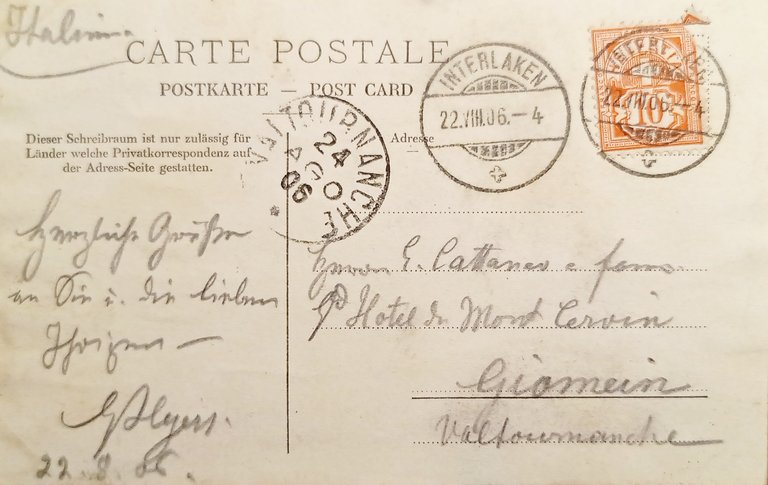 Italien.
CARTE POSTALE
POSTKARTE — POST CARD
Dieser Schreibraum ist nur zulässig für
Länder welche Privatkorrespondenz auf
der Adress-Seite gestatten.
Adresse
INTERLAKEN
22.VIII.06.–4
INTERLAKEN
22.VIII.06.–4
10
VALTOURNANCHE
24
AGO
06
Herzliche Grüße
an Sie u. die lieben
Ihrigen —
22.8.06.
Herrn E. Cattaneo e fam.
Gd Hotel du Mont Cervin
Giomein
Valtournanche